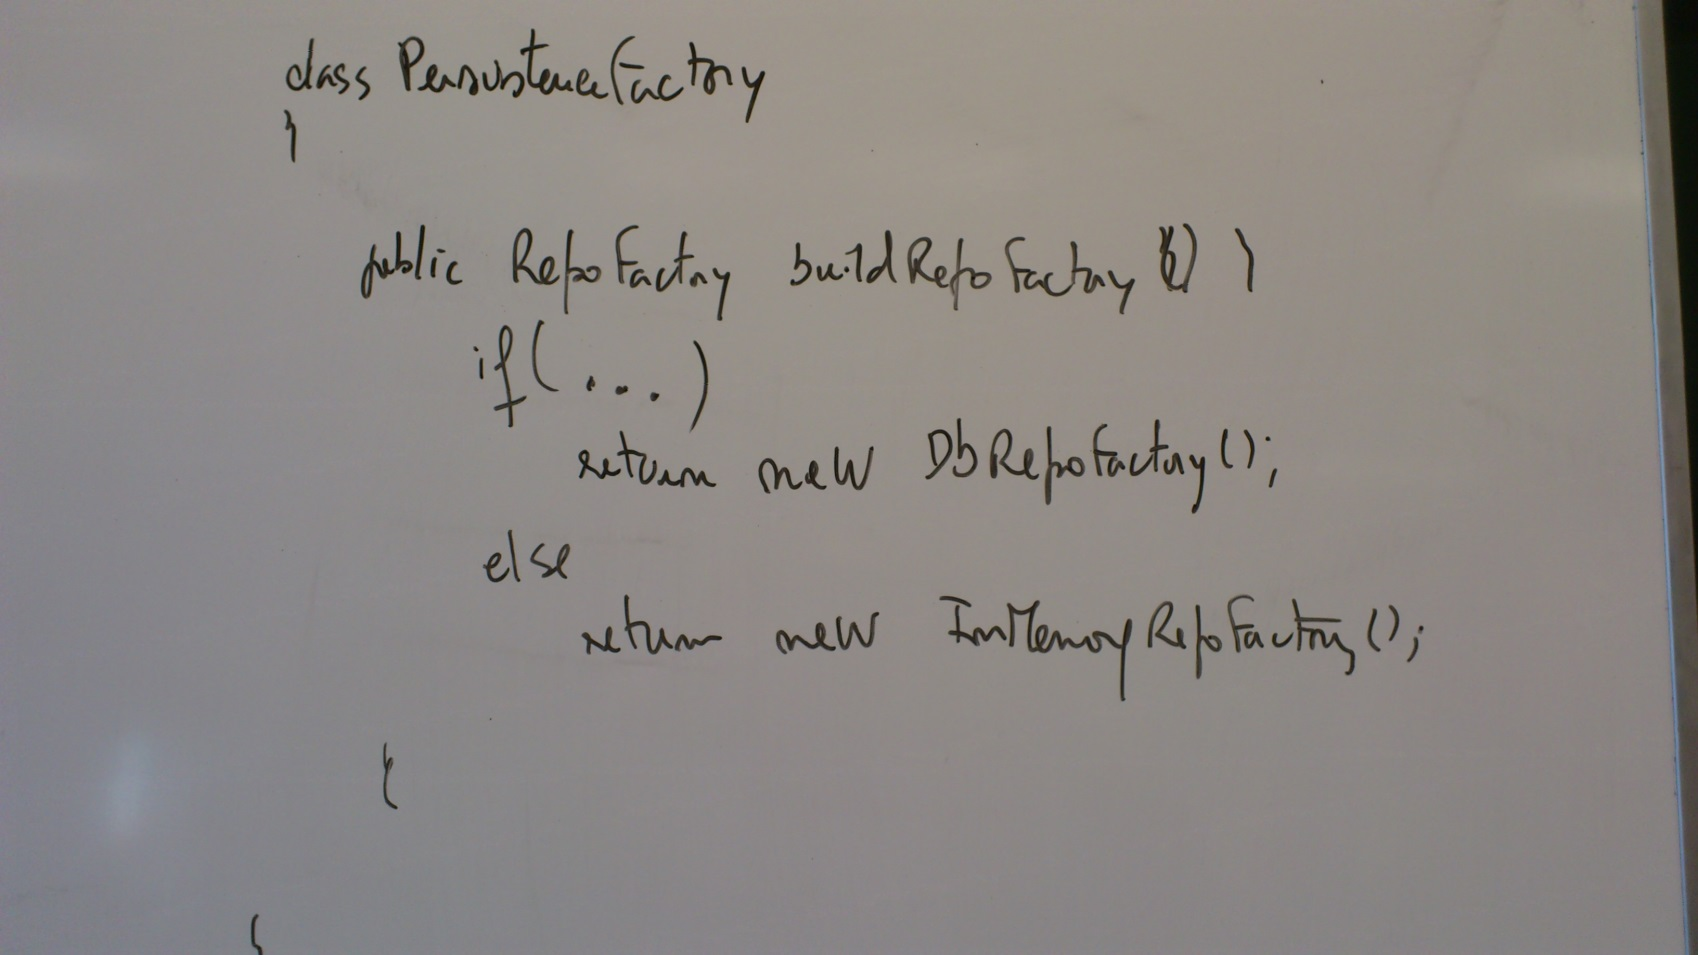 class PersistenceFactory
}
public RepoFactory buildRepoFactory () }
if(...)
return new DbRepoFactory();
else
return new InMemoryRepoFactory();
{
{